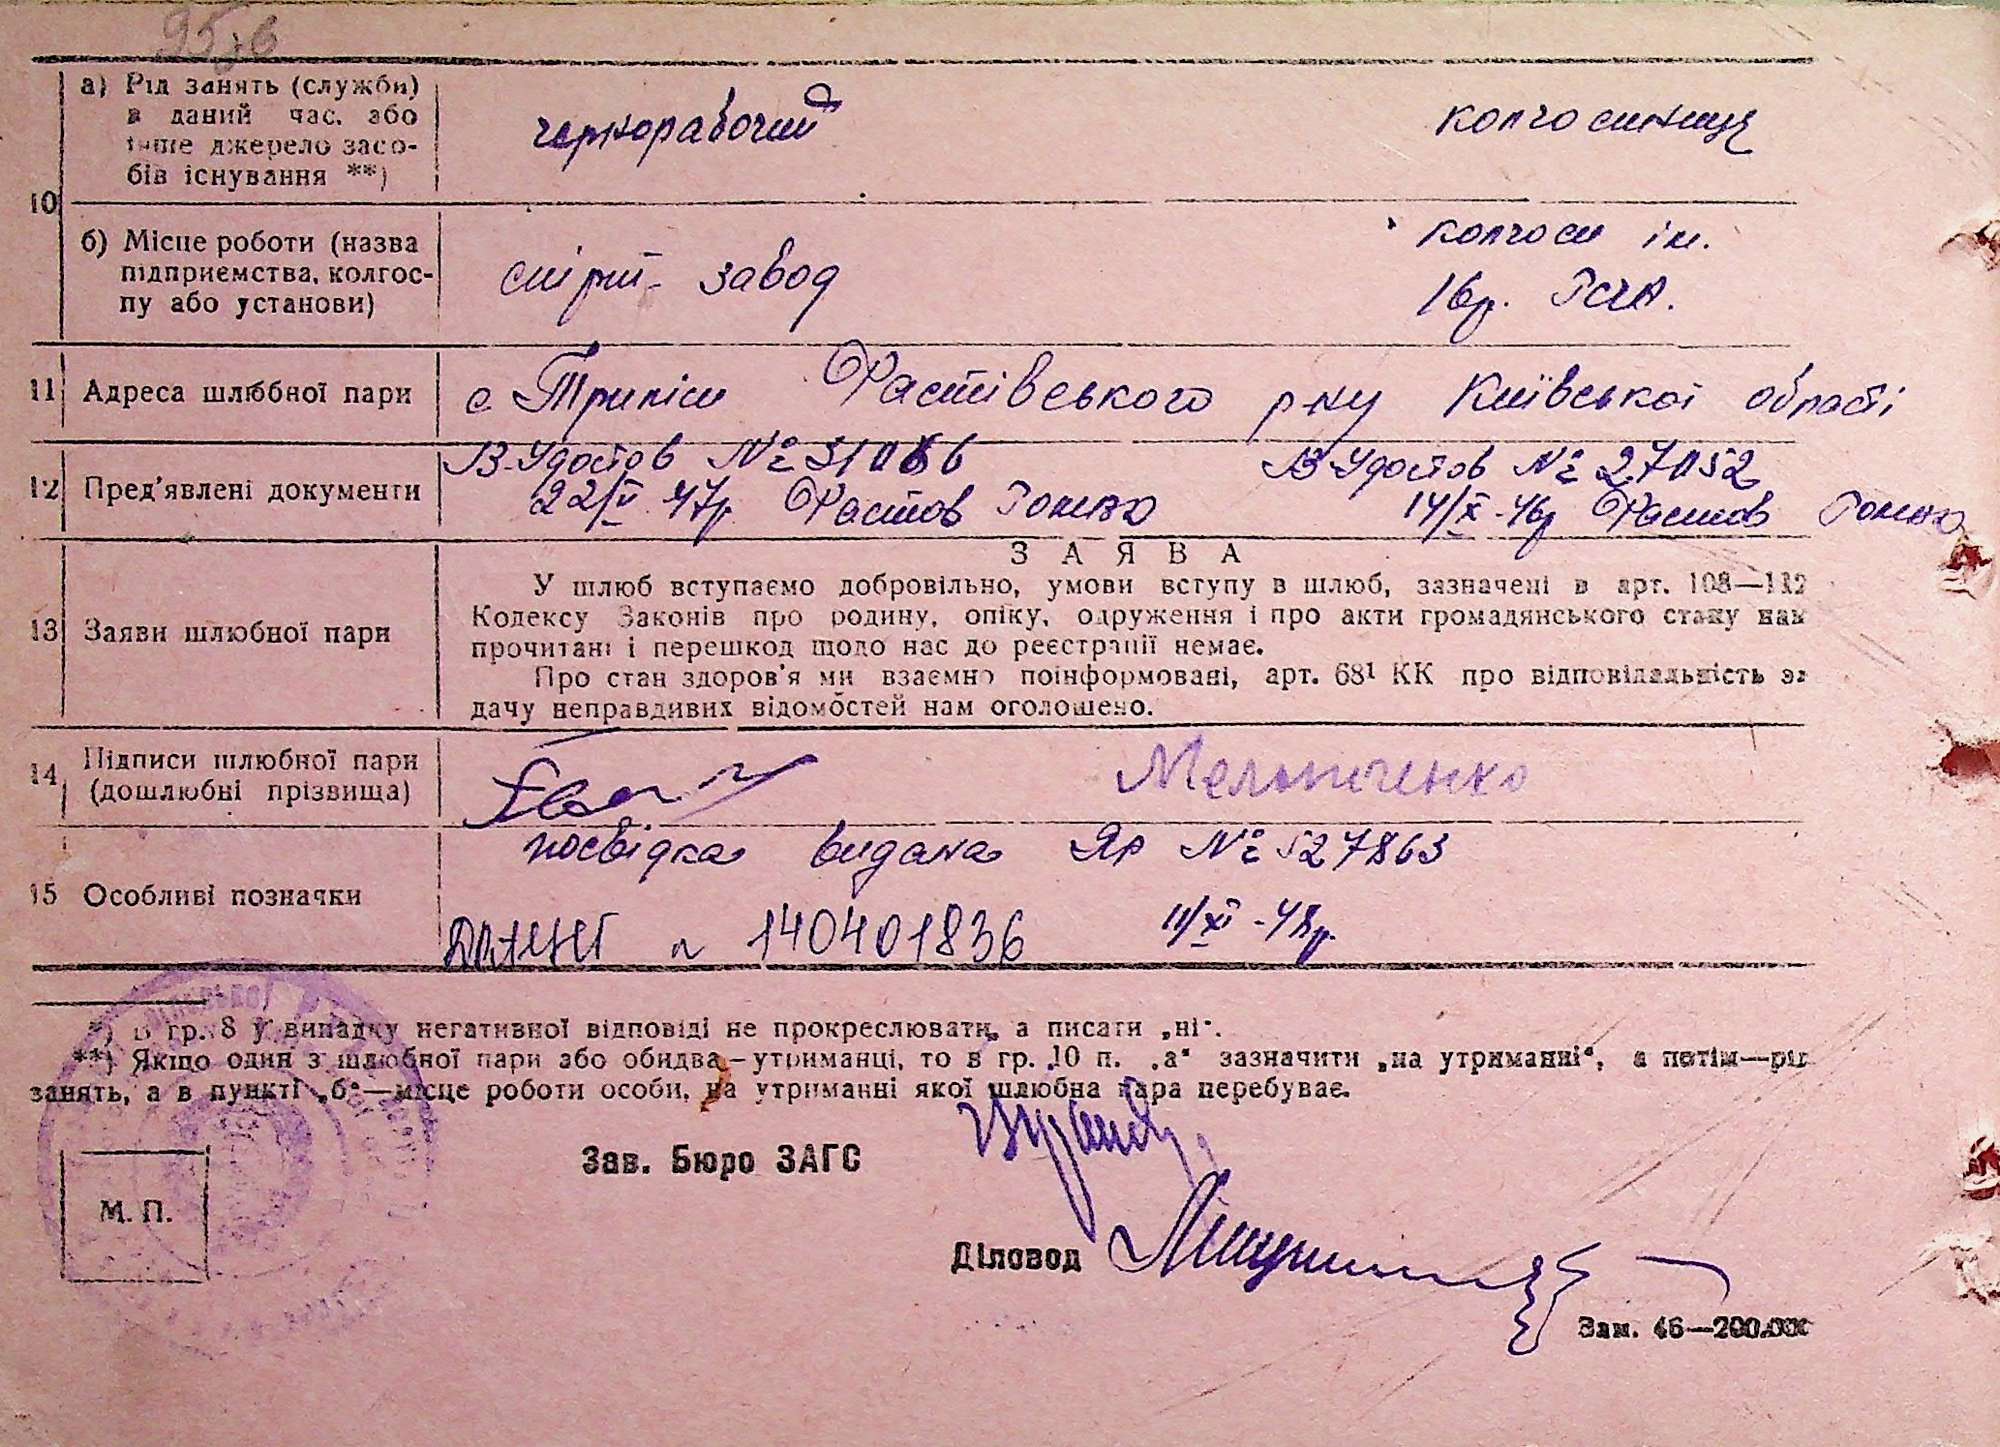 а) Рід занять (служби)
в даний час, або
інше джерело засо-
бів існування **)
чернорабочий
колгосниця
10
б) Місце роботи (назва
підприємства, колгос-
пу або установи)
спірт-завод
колгосп ім.
16р. РСЧА.
11 Адреса шлюбної пари
с. Трилісы Фастівського р-ну Київської області
12 Пред'явлені документи
В-Удостов №
22/V 47р. Фастов
В-Удостов № 27052
14/X-46р Фастов
ЗАЯВА
13 Заяви шлюбної пари
У шлюб вступаємо добровільно, умови вступу в шлюб, зазначені в арт. 108—112
Кодексу Законів про родину, опіку, одруження і про акти громадянського стану нам
прочитані і перешкод щодо нас до реєстрації немає.
Про стан здоров'я ми взаємно поінформовані, арт. 68¹ КК про відповідальність за
дачу неправдивих відомостей нам оголошено.
14 Підписи шлюбної пари
(дошлюбні прізвища)
Мельниченко
15 Особливі позначки
посвідка видана Яр № 527863
140401836
11/XI-48р.
*) В гр. 8 у випадку негативної відповіді не прокреслювати, а писати „ні".
**) Якщо один з шлюбної пари або обидва – утриманці, то в гр. 10 п. „а" зазначити „на утриманні", а потім—рід
занять, а в пункті „б"—місце роботи особи, на утриманні якої шлюбна пара перебуває.
Зав. Бюро ЗАГС
М. П.
Діловод
Зам. 46—200.000